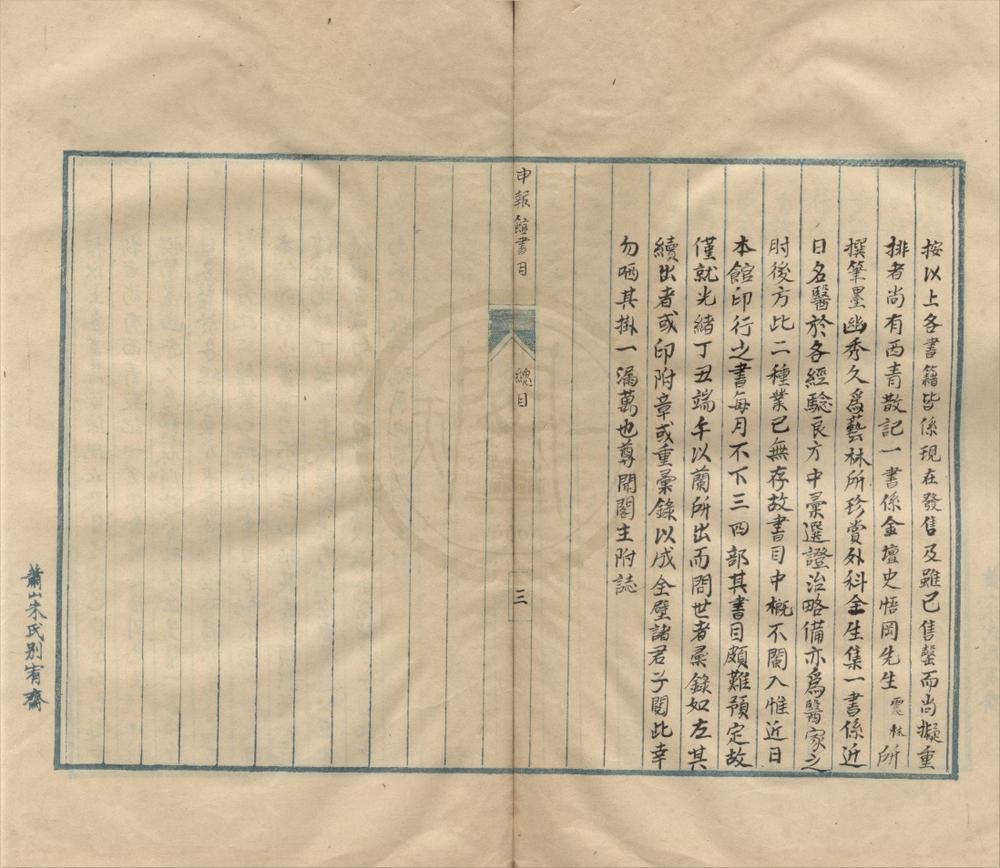 按以上各書籍皆係現在發售及雖已售罄而尚擬重
排者尚有西青散記一書係金壇史悟岡先生震林所
撰筆墨幽秀久爲藝林所珍賞外科全生集一書係近
日名醫於各經驗良方中彙選證治略備亦爲醫家之
肘後方此二種業已無存故書目中概不闌入惟近日
本館印行之書每月不下三四部其書目頗難預定故
僅就光緒丁丑端午以前所出而問世者彙錄如左其
續出者或印附章或重彙錄以成全璧諸君子閱此幸
勿哂其掛一漏萬也尊聞閣主附誌
申報館書目
總目
三
蕭山朱氏別宥齋